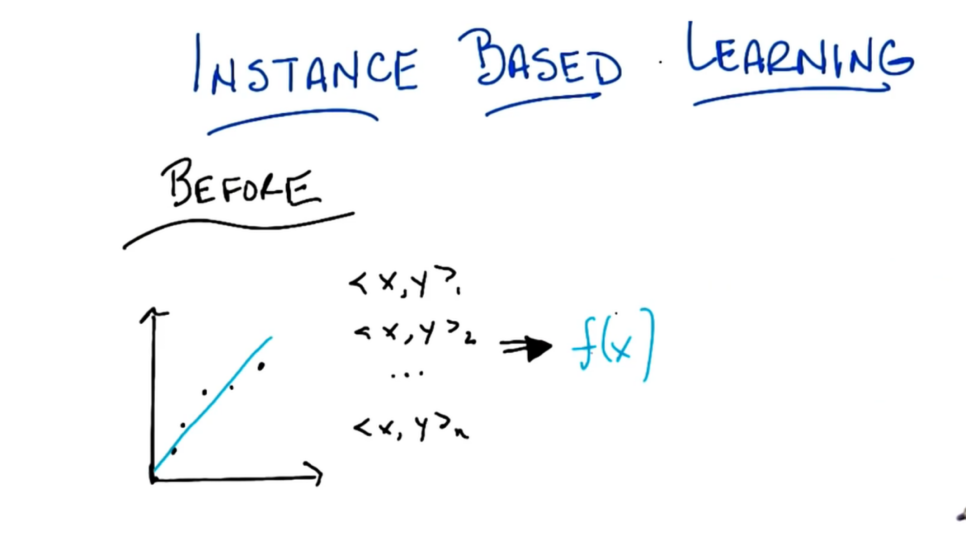 INSTANCE BASED LEARNING
BEFORE
<x,y>₁
<x,y>₂ ⇒ f(x)
...
<x,y>ₙ